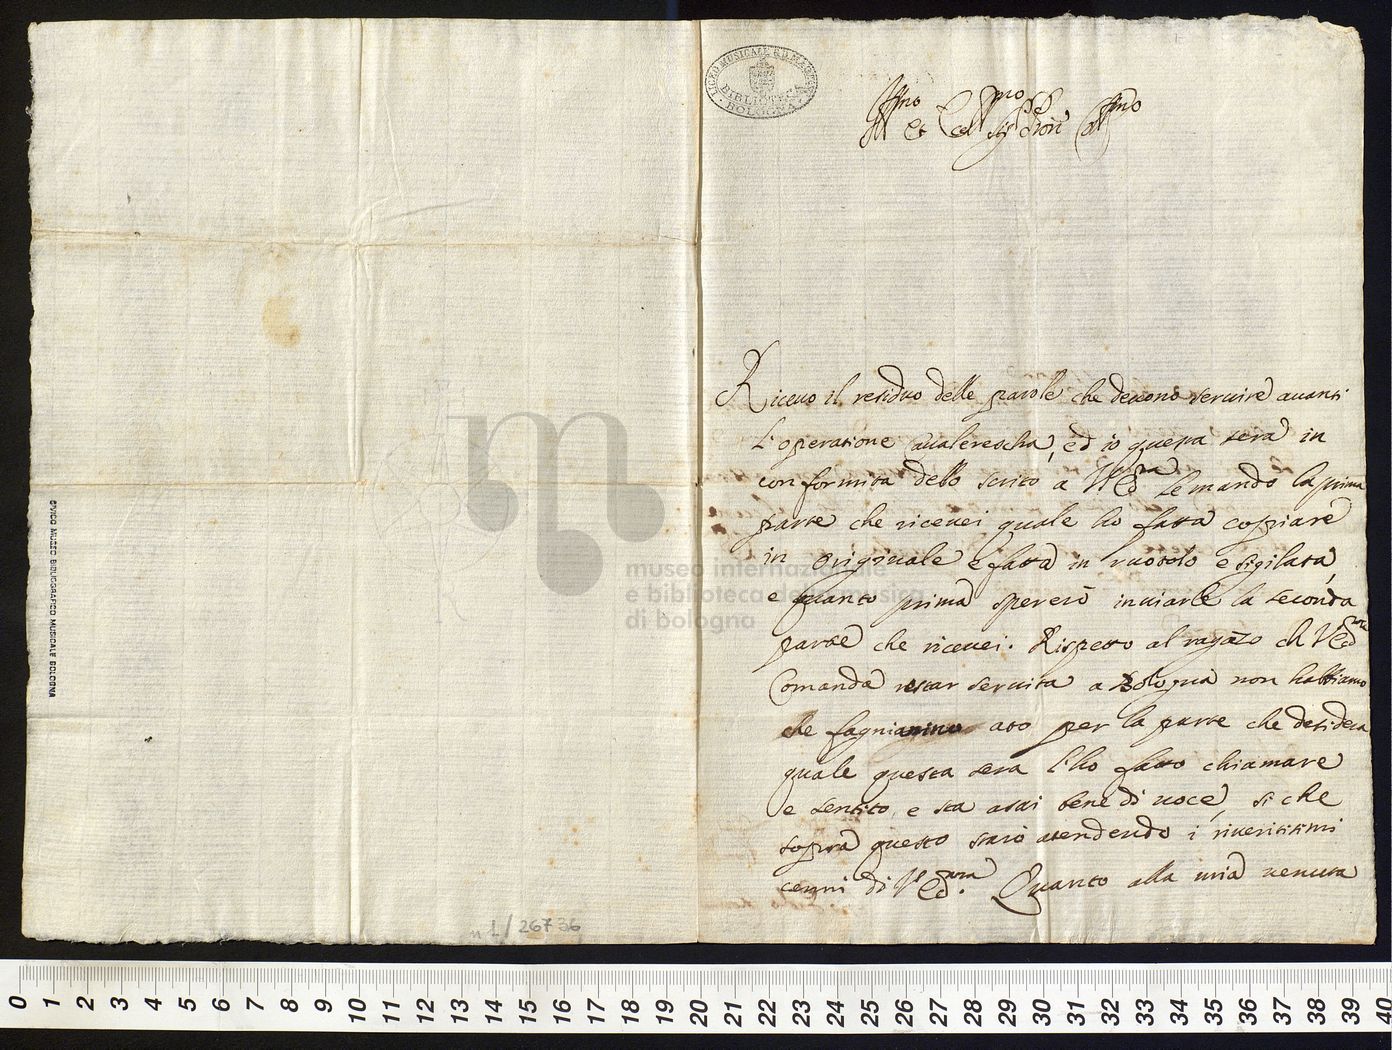 LICEO MUSICALE
BIBLIOTECA
BOLOGNA
Ill.mo et Ecc.mo Sig.r
Riceuo il residuo delle parole che deuono seruire auanti
l'operatione Caualerescha, ed io questa sera in
conformita dello scrito a V. Ecc.za le mando la prima
parte che riceuei quale ho fatta copiare
in originale e fatta in ruotolo e sigilata,
e quanto prima sperero inuiarle la seconda
parte che riceuei. Rispetto al ragazo ch V. Ecc.za
Comanda restar seruita a Bologna non habbiamo
che fagnianino ato per la parte che desidera
quale questa sera l'ho fatto chiamare
e sentito, e sta asai bene di uoce, si che
sopra questo staro atendendo i riueritissimi
cenni di V. Ecc.za. Quanto alla mia uenuta
CIVICO MUSEO BIBLIOGRAFICO MUSICALE BOLOGNA
museo internazionale
e biblioteca della musica
di bologna
26736
0 1 2 3 4 5 6 7 8 9 10 11 12 13 14 15 16 17 18 19 20 21 22 23 24 25 26 27 28 29 30 31 32 33 34 35 36 37 38 39 40